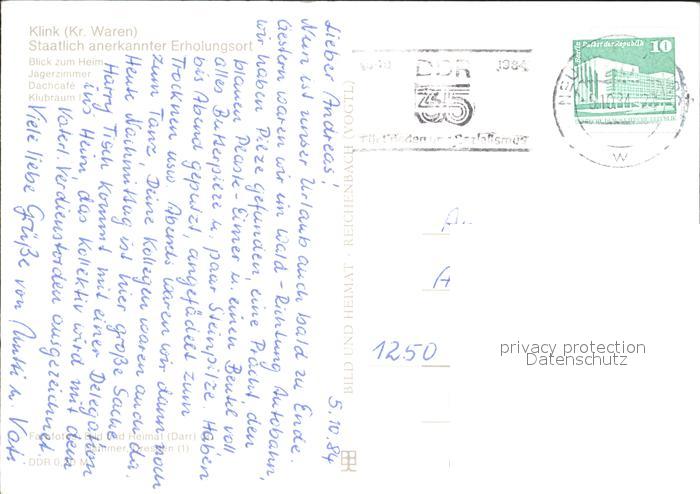 Klink (Kr. Waren)
Staatlich anerkannter Erholungsort
Blick zum Heim
Jägerzimmer
Dachcafé
Klubraum
Lieber Andreas!
5.10.84
Nun ist unser Urlaub auch bald zu Ende.
Gestern waren wir im Wald-Richtung Autobahn,
wir haben Pilze gefunden, eine Pracht, den
blauen Plaste-Eimer u. einen Beutel voll
alles Butterpilze u. paar Steinpilze. Haben
bis Abend geputzt, angefädelt zum
Trocknen usw. Abends waren wir dann noch
zum Tanz, Deine Kollegen waren auch da.
Heute Nachmittag ist hier große Sache
Harry Tisch kommt mit einer Delegation
ins Heim, das Kollektiv wird mit dem
Vaterl. Verdienstorden ausgezeichnet.
Viele liebe Grüße von Mutti u. Vati
BILD UND HEIMAT · REICHENBACH (VOGTL)
DDR 1984
35
Berlin Palast der Republik 10
W
A
1250
privacy protection
Datenschutz
Bild und Heimat (Darr)
(1)
DDR